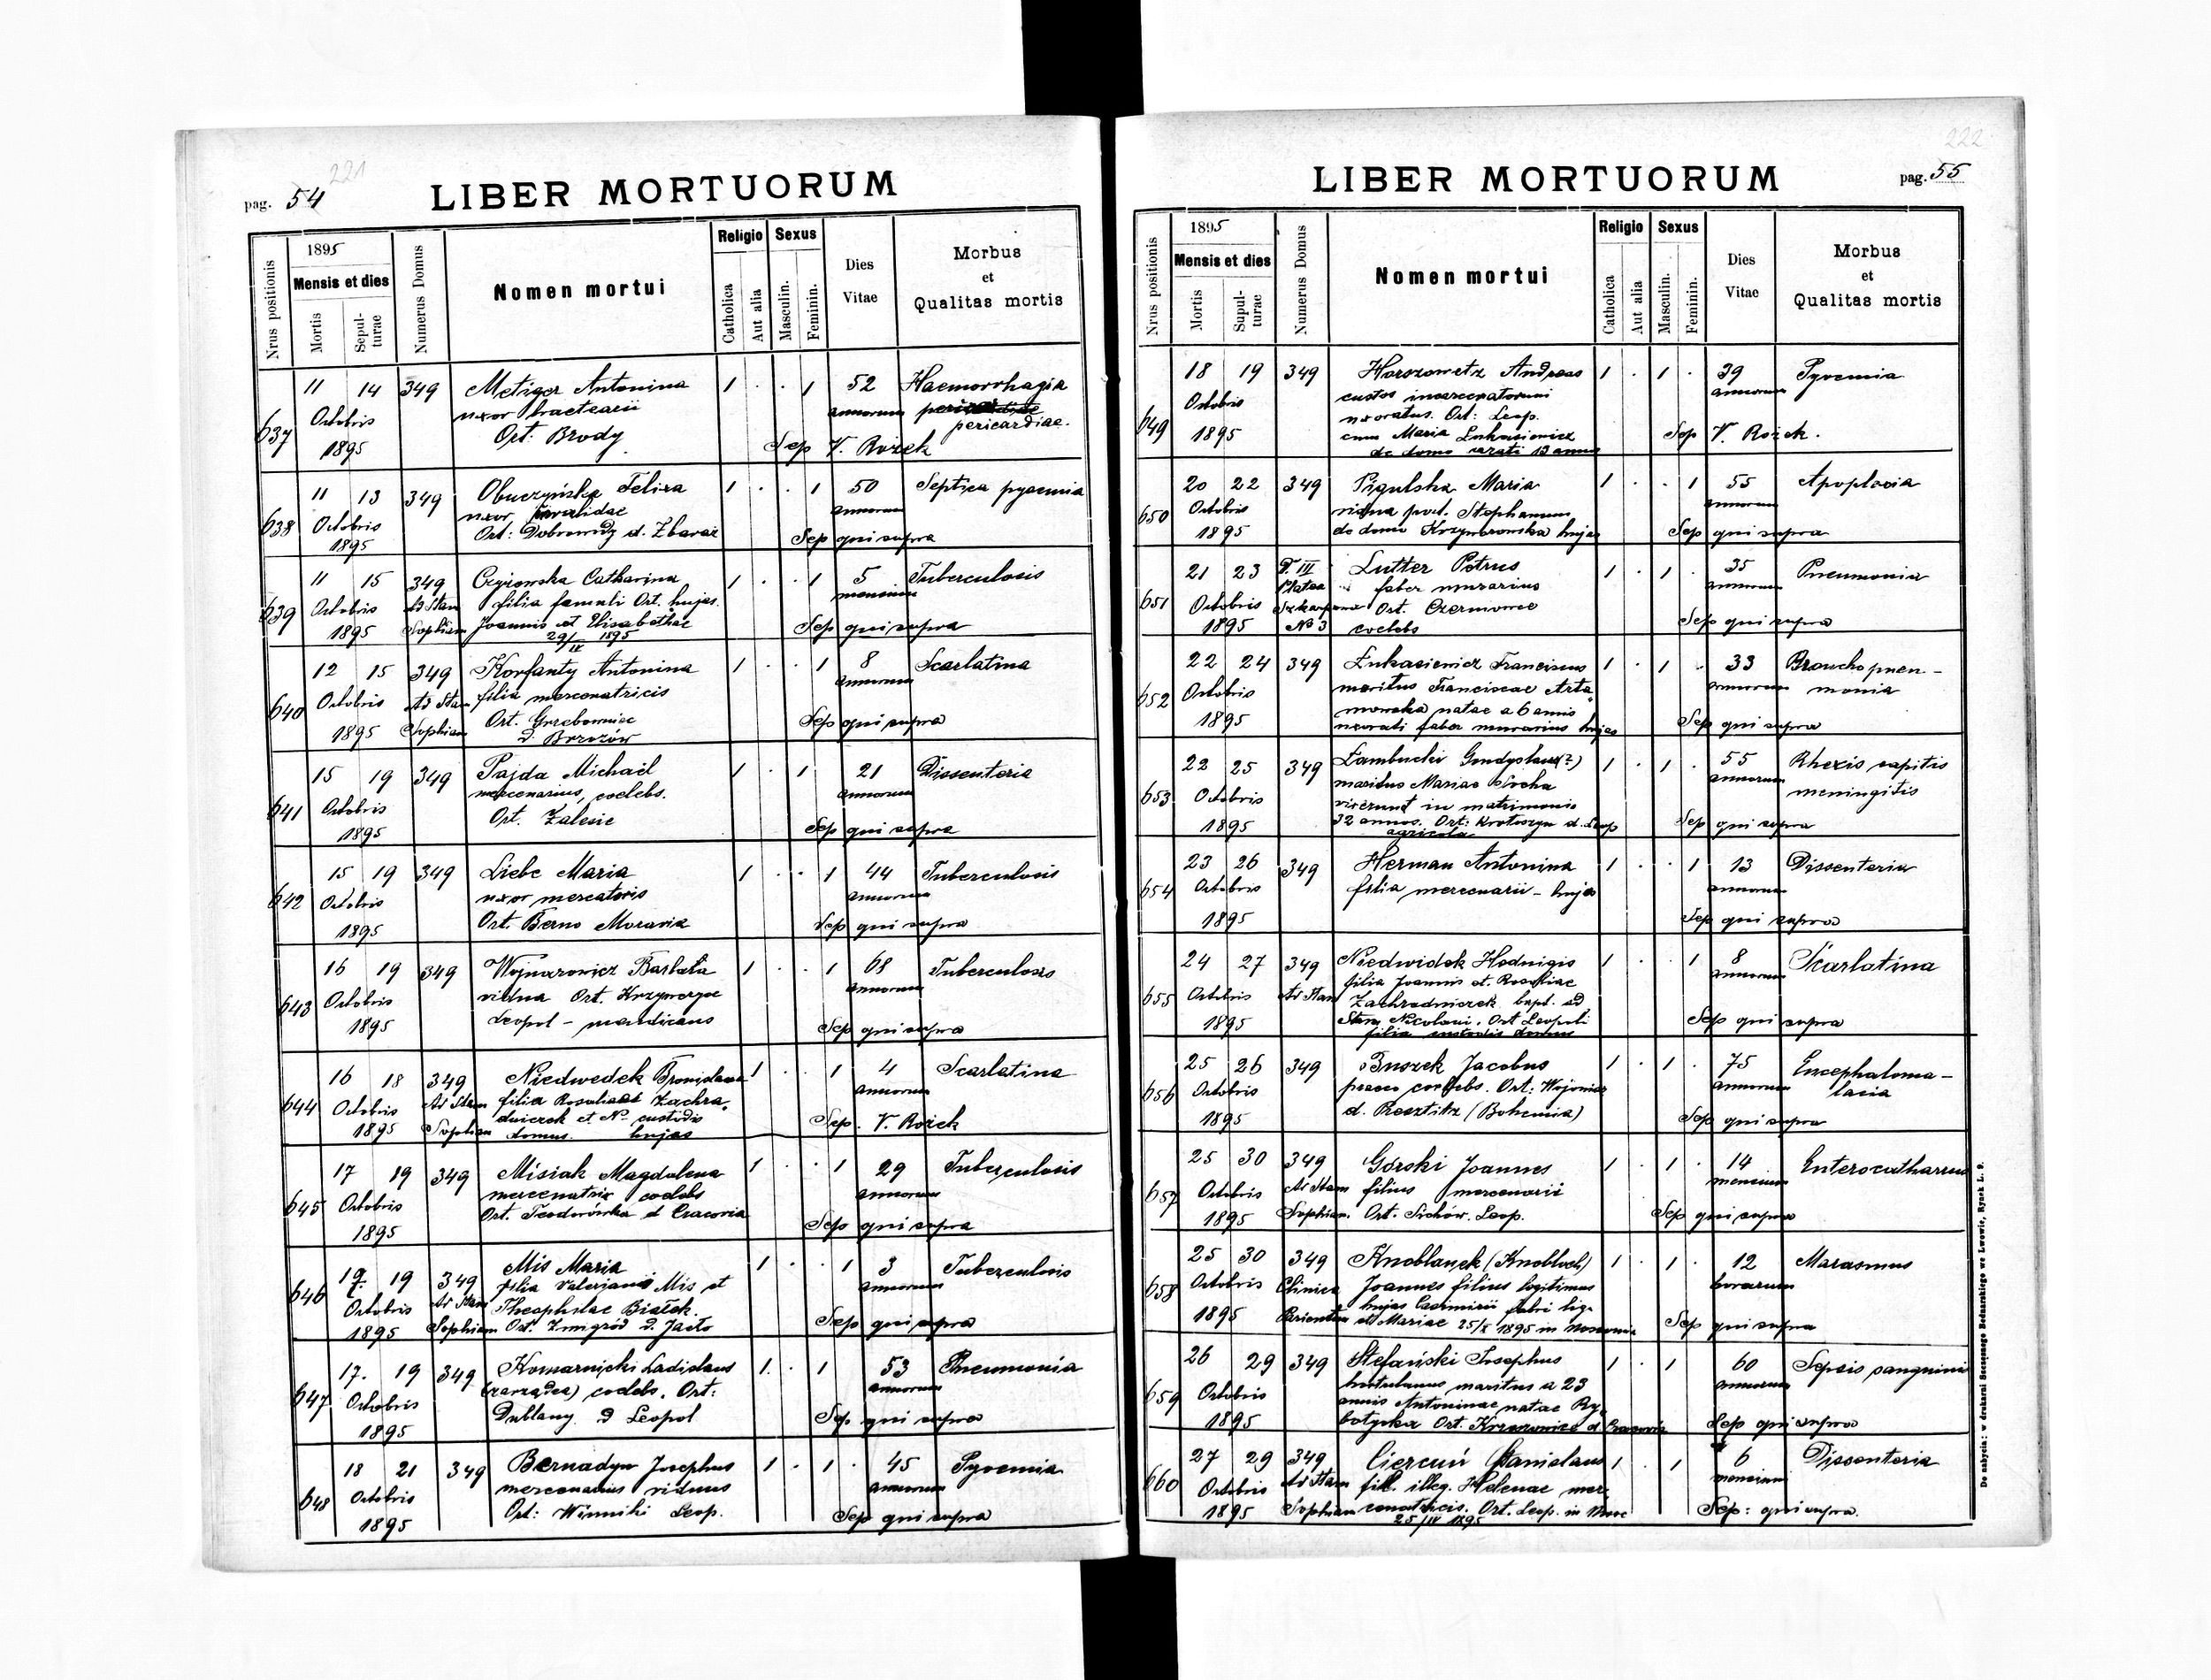 221
pag. 54
LIBER MORTUORUM
Nrus positionis
1895
Mensis et dies
Mortis
Sepul-
turae
Numerus Domus
Nomen mortui
Religio
Catholica
Aut alia
Sexus
Masculin.
Feminin.
Dies
Vitae
Morbus
et
Qualitas mortis
637
11 14 349 Metzger Antonina 1 . . 1 52 Haemorrhagia
Octobris uxor bractearii annorum
pericardiae.
1895 Ort. Brody Sep V. Rożek
638
11 13 349 Obuczyńska Felixa 1 . . 1 50 Septica pyaemia
Octobris uxor invalidae annorum
1895 Ort: Dobrowody d. Zbaraż Sep qui supra
639
11 15 349 Czyżowska Catharina 1 . . 1 5 Tuberculosis
Octobris Ad Stam filia famuli Ort. hujas. mensium
1895 Sophiam Joannis et Elisabethae Sep qui supra
29/IV 1895
640
12 15 349 Korfanty Antonina 1 . . 1 8 Scarlatina
Octobris Ad Stam filia mercenatricis annorum
1895 Sophiam Ort. Sep qui supra
d. Brzozów
641
15 19 349 Pajda Michaël 1 . 1 21 Dissenteria
Octobris mercenarius, coelebs. annorum
1895 Ort. Zalesie Sep qui supra
642
15 19 349 Liebe Maria 1 . . 1 44 Tuberculosis
Octobris uxor mercatoris annorum
1895 Ort. Berno Moravia Sep qui supra
643
16 19 349 Wojnarowicz Barbara 1 . . 1 68 Tuberculosis
Octobris vidua Ort. Krzywczyce annorum
1895 Leopol - mendicans Sep qui supra
644
16 18 349 Niedwedek Bronislava 1 . . 1 4 Scarlatina
Octobris Ad Stam filia Rosaliae Zachra- annorum
1895 Sophiam dniczek et N. custodis Sep. V. Rożek
domus. hujas
645
17 19 349 Misiak Magdalena 1 . . 1 29 Tuberculosis
Octobris mercenatrix coelebs annorum
1895 Ort. Teodorówka d Cracovia Sep qui supra
646
17. 19 349 Mis Maria 1 . . 1 3 Tuberculosis
Octobris Ad Stam filia Valeriani Mis et annorum
Theophilae Białek.
1895 Sophiam Ort. Żmigród d. Jasło Sep qui supra
647
17. 19 349 Komarnicki Ladislaus 1. . 1 53 Pneumonia
Octobris (zarządca) coelebs. Ort: annorum
1895 Dublany d Leopol Sep qui supra
648
18 21 349 Bernadyn Josephus 1 . 1 . 45 Pyoemia
Octobris mercenarius viduus annorum
1895 Ort: Winniki Leop. Sep qui supra
222
pag. 55
LIBER MORTUORUM
Nrus positionis
1895
Mensis et dies
Mortis
Supul-
turae
Numerus Domus
Nomen mortui
Religio
Catholica
Aut alia
Sexus
Masculin.
Feminin.
Dies
Vitae
Morbus
et
Qualitas mortis
649
18 19 349 Horszowetz Andreas 1 . 1 . 39 Pyoemia
Octobris custos incarceratorum annorum
uxoratus. Ort: Leop.
1895 cum Maria Lukasiewicz Sep V. Rożek.
de domo uxorati 13 annos
650
20 22 349 Pigulska Maria 1 . . 1 55 Apoplexia
Octobris vidua post. Stephanum annorum
1895 de domo hujas Sep qui supra
651
21 23 P. III Lutter Petrus 1 . 1 . 35 Pneumonia
Octobris Platea faber murarius annorum
Szkarpowa Ort. Czerniowce
1895 No 3 coelebs Sep qui supra
652
22 24 349 Łukasiewicz Franciscus 1 . 1 . 33 Bronchopneu-
Octobris maritus Franciscae Arta- annorum monia
mowska natae a 6 annis
1895 uxorati faber murarius hujas Sep qui supra
653
22 25 349 Łambucki Gondyslaus(?) 1 . 1 . 55 Rhexis capitis
Octobris maritus Mariae Wocha annorum meningitis
vixerunt in matrimonio
1895 32 annos. Ort: Krotoszyn d. Leop Sep qui supra
agricola
654
23 26 349 Herman Antonina 1 . . 1 13 Dissenteria
Octobris filia mercenarii - hujas annorum
1895 Sep qui supra
655
24 27 349 Niedwidek Hedvigis 1 . . 1 8 Skarlatina
Octobris Ad Stam filia Joannis et. Rosaliae annorum
Zachradniczek bapt. ad
1895 Stum Nicolaum. Ort Leopoli Sep qui supra
filia custodis domus
656
25 26 349 Buszek Jacobus 1 . 1 . 75 Encephaloma-
Octobris praeco coelebs. Ort: annorum lacia
1895 d. (Bohemia) Sep qui supra
657
25 30 349 Górski Joannes 1 . 1 . 14 Enterocatharrus
Octobris Ad Stam filius mercenarii mensium
1895 Sophiam. Ort. Sichów. Leop. Sep qui supra
658
25 30 349 Knoblauek (Knobloch) 1 . 1 . 12 Marasmus
Octobris Clinica Joannes filius legitimus horarum
hujas Casimirii fabri lig.
1895 Parientum et Mariae 25/X 1895 in Sep qui supra
659
26 29 349 Stefański Josephus 1 . 1 60 Sepsis sanguinis
Octobris hortulanus maritus a 23 annorum
annis Antoninae natae Ry-
1895 botycka Ort. Krzeszowice d Cracovia Sep qui supra
660
27 29 349 Ciercuń Stanislaus 1 . 1 6 Dissenteria
Octobris Ad Stam fil. illeg. Helenae mer- mensium
1895 Sophiam cenatricis. Ort. Leop. in Sep: qui supra.
25/IV 1895
Do nabycia: w drukarni Szczęsnego Bednarskiego we Lwowie, Rynek L. 9.